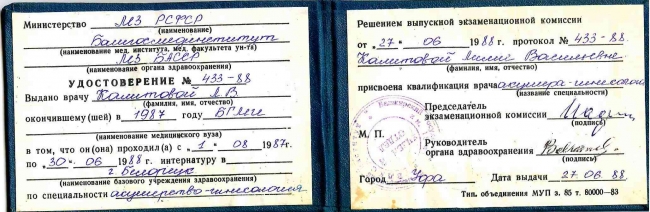 Министерство МЗ РСФСР
(наименование)
Башгосмединститут
(наименование мед. института, мед. факультета ун-та)
МЗ БАССР
(наименование органа здравоохранения)
УДОСТОВЕРЕНИЕ № 433-88
Выдано врачу Л.В.
(фамилия, имя, отчество)
окончившему (шей) в 1987 году БГМИ
(наименование медицинского вуза)
в том, что он(она) проходил(а) с 1 08 1987г.
по 30 06 1988 г. интернатуру в
г. Белорецк
(наименование базового учреждения здравоохранения)
по специальности акушерство-гинекология
Решением выпускной экзаменационной комиссии
от "27" 06 1988 г. протокол № 433-88
Васильевне
(фамилия, имя, отчество)
присвоена квалификация врача акушера-гинеколога
(название специальности)
Председатель
экзаменационной комиссии
(подпись)
М. П.
Руководитель
органа здравоохранения
(подпись)
Город Уфа Дата выдачи 27 06. 88
Тип. объединения МУП з. 85 т. 80000—83